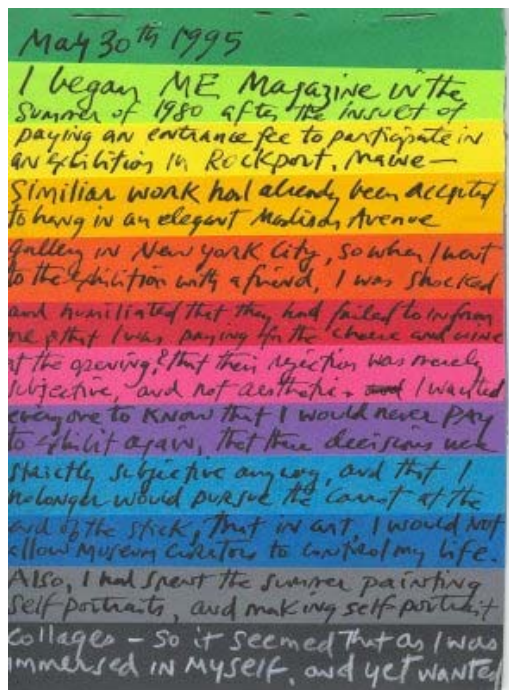 May 30th 1995
I began ME Magazine in the
Summer of 1980 after the insult of
paying an entrance fee to participate in
an exhibition in Rockport, Maine—
Similiar work had already been accepted
to hang in an elegant Madison Avenue
gallery in New York City, so when I went
to the exhibition with a friend, I was shocked
and humiliated that they had failed to inform
me & that I was paying for the cheese and wine
at the opening, & that their rejection was merely
subjective, and not aesthetic. I wanted
everyone to know that I would never PAY
to exhibit again, that these decisions were
strictly subjective anyway, and that I
no longer would pursue the carrot at the
end of the stick, that in art, I would not
allow Museum Curators to control my life.
Also, I had spent the summer painting
self portraits, and making self-portrait
collages – so it seemed that as I was
immersed in Myself, and yet wanted